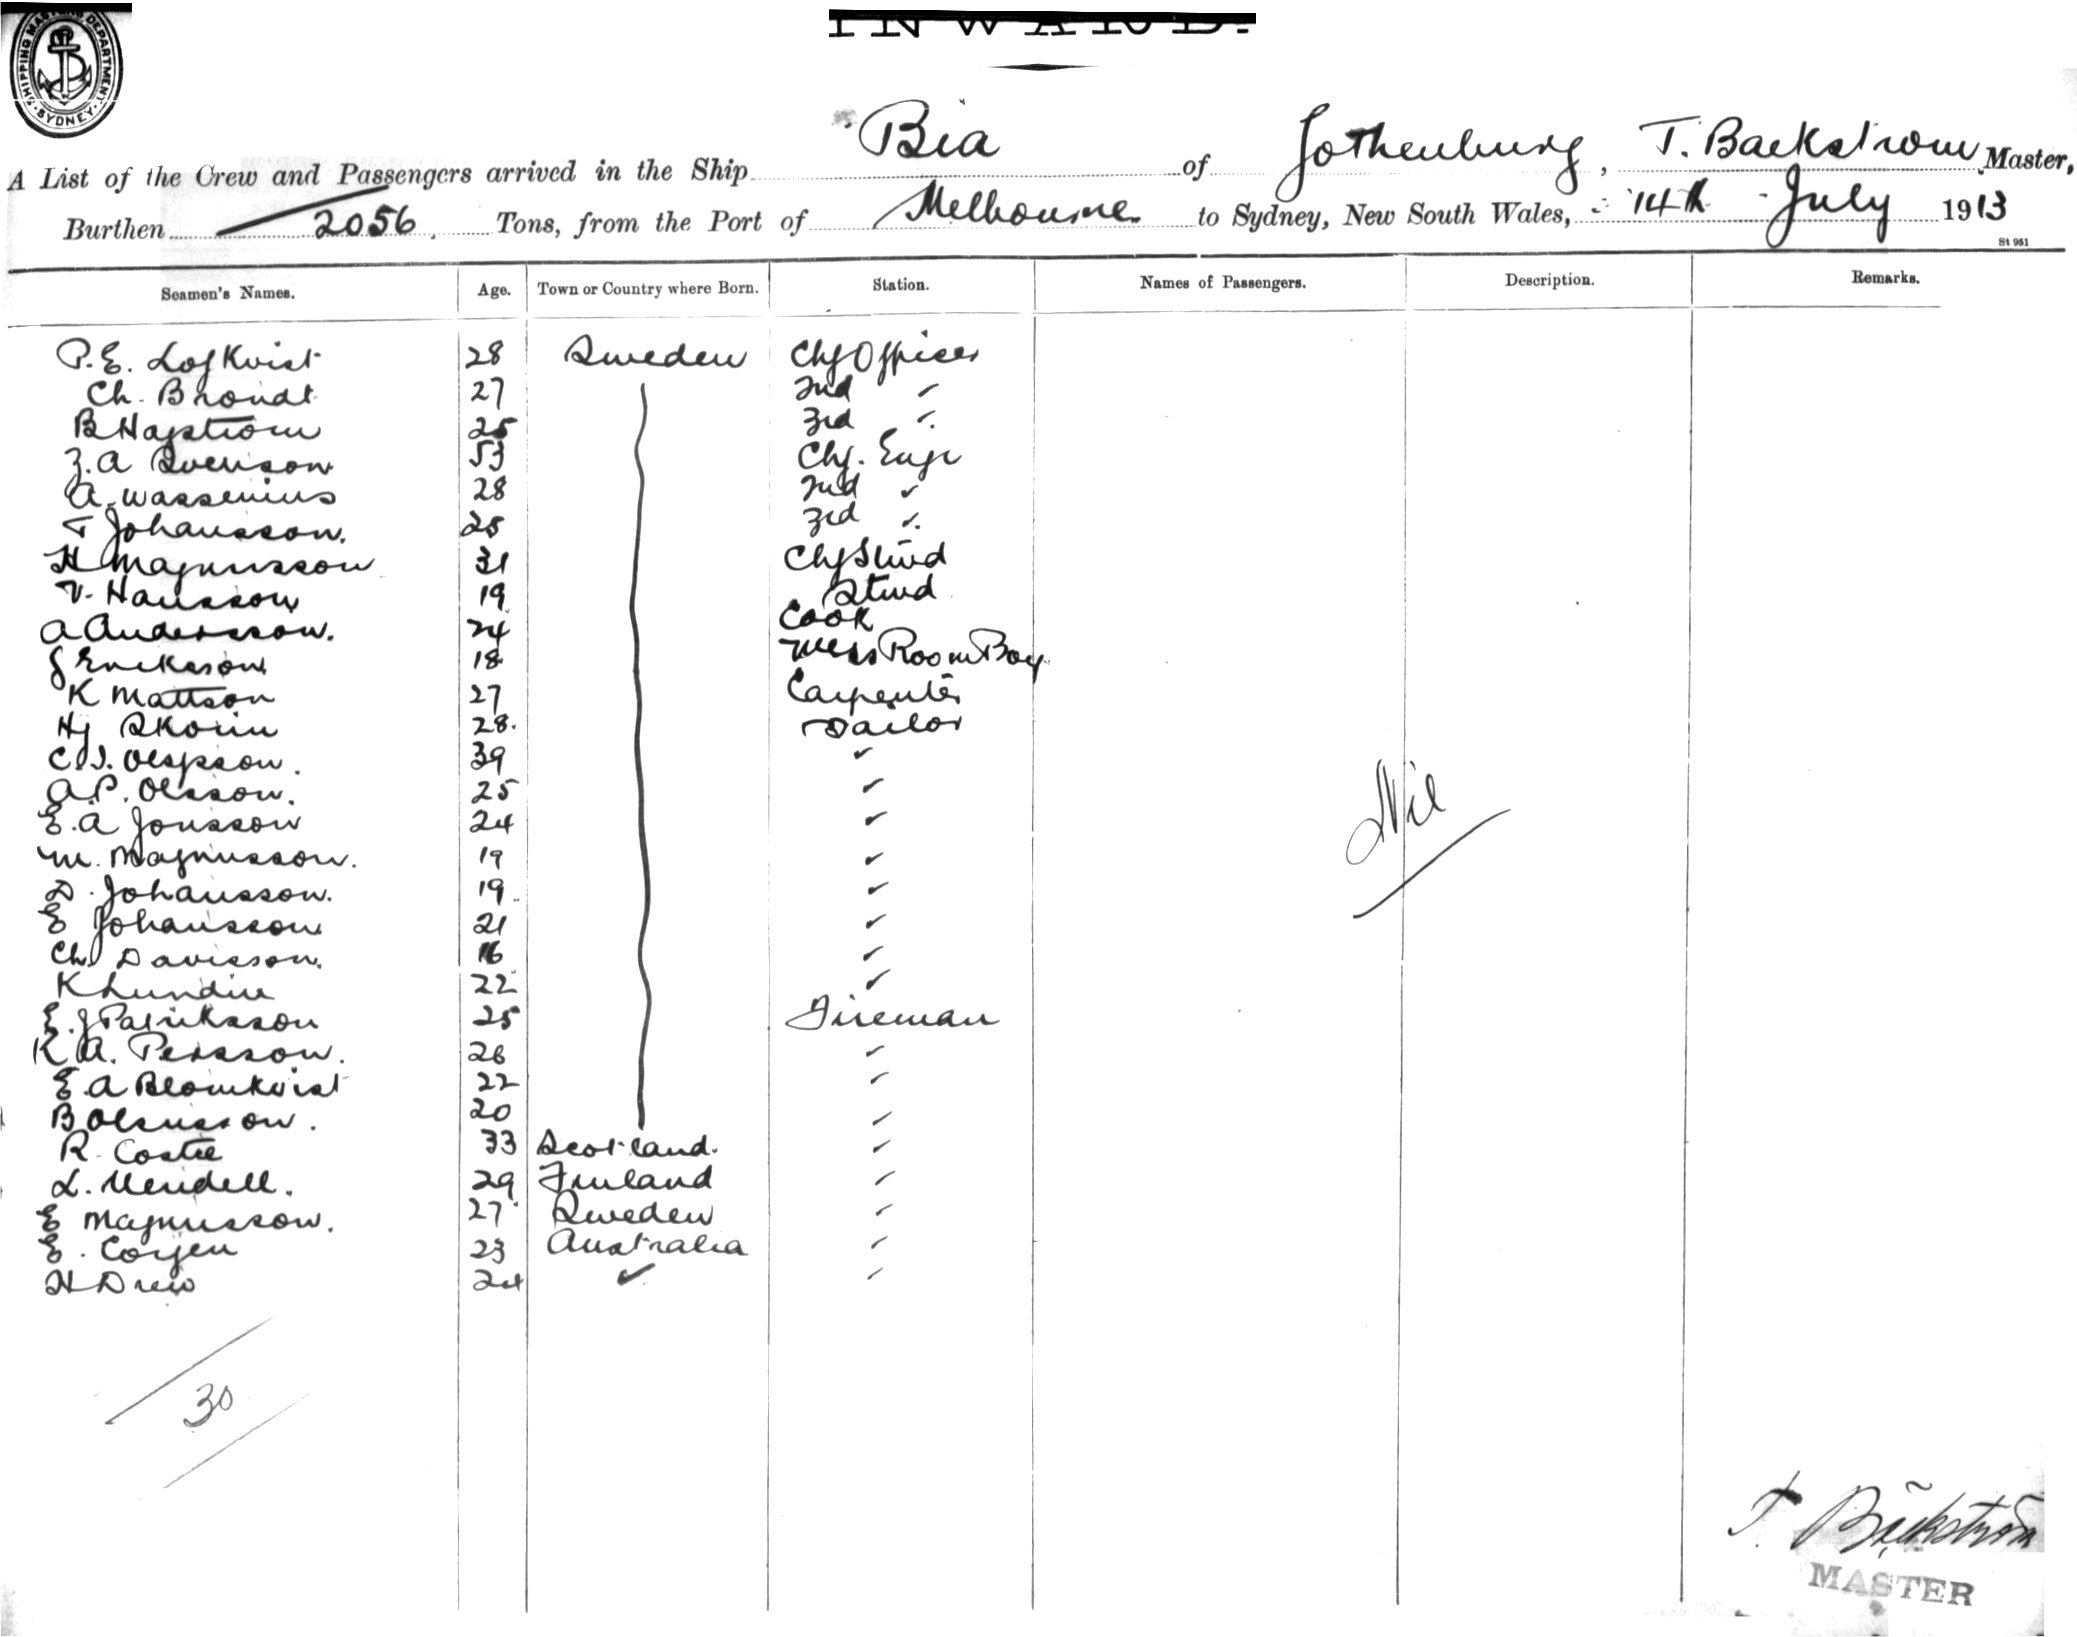 SHIPPING MASTERS DEPARTMENT · SYDNEY ·
INWARD.
A List of the Crew and Passengers arrived in the Ship Bia of Gothenburg, T. Backstrom Master,
Burthen 2056 Tons, from the Port of Melbourne to Sydney, New South Wales, 14th July 1913
St 951
Seamen's Names. Age. Town or Country where Born. Station. Names of Passengers. Description. Remarks.
P. E. Lofkvist 28 Sweden Chf Officer
Ch. Brondt 27 2nd "
B Hagstrom 25 3rd "
Z. A Svenson 53 Chf. Engr
A. Wassenius 28 2nd "
T Johansson. 25 3rd "
H Magnusson 31 Chf Stwd
V. Hansson 19 Stwd
A Andersson. 24 Cook
J Ericksson 18 Mess Room Boy
K Mattson 27 Carpenter
Hj Skorin 28. Sailor
C. J. 39 "
A. P. Olsson. 25 "
E. A Jonsson 24 "
M. Magnusson. 19 "
D. Johansson. 19 "
E Johansson 21 "
Ch Davisson. 16 "
K Lundin 22 "
E. J Patriksson 25 Fireman
K A. Persson. 26 "
E. A Blomkvist 22 "
B 20 "
R. Costie 33 Scotland. "
L. Wendell. 29 Finland "
E Magnusson. 27 Sweden "
E. Coyen 23 Australia "
H Drew 24 " "
Nil
30
T. Bäckström
MASTER